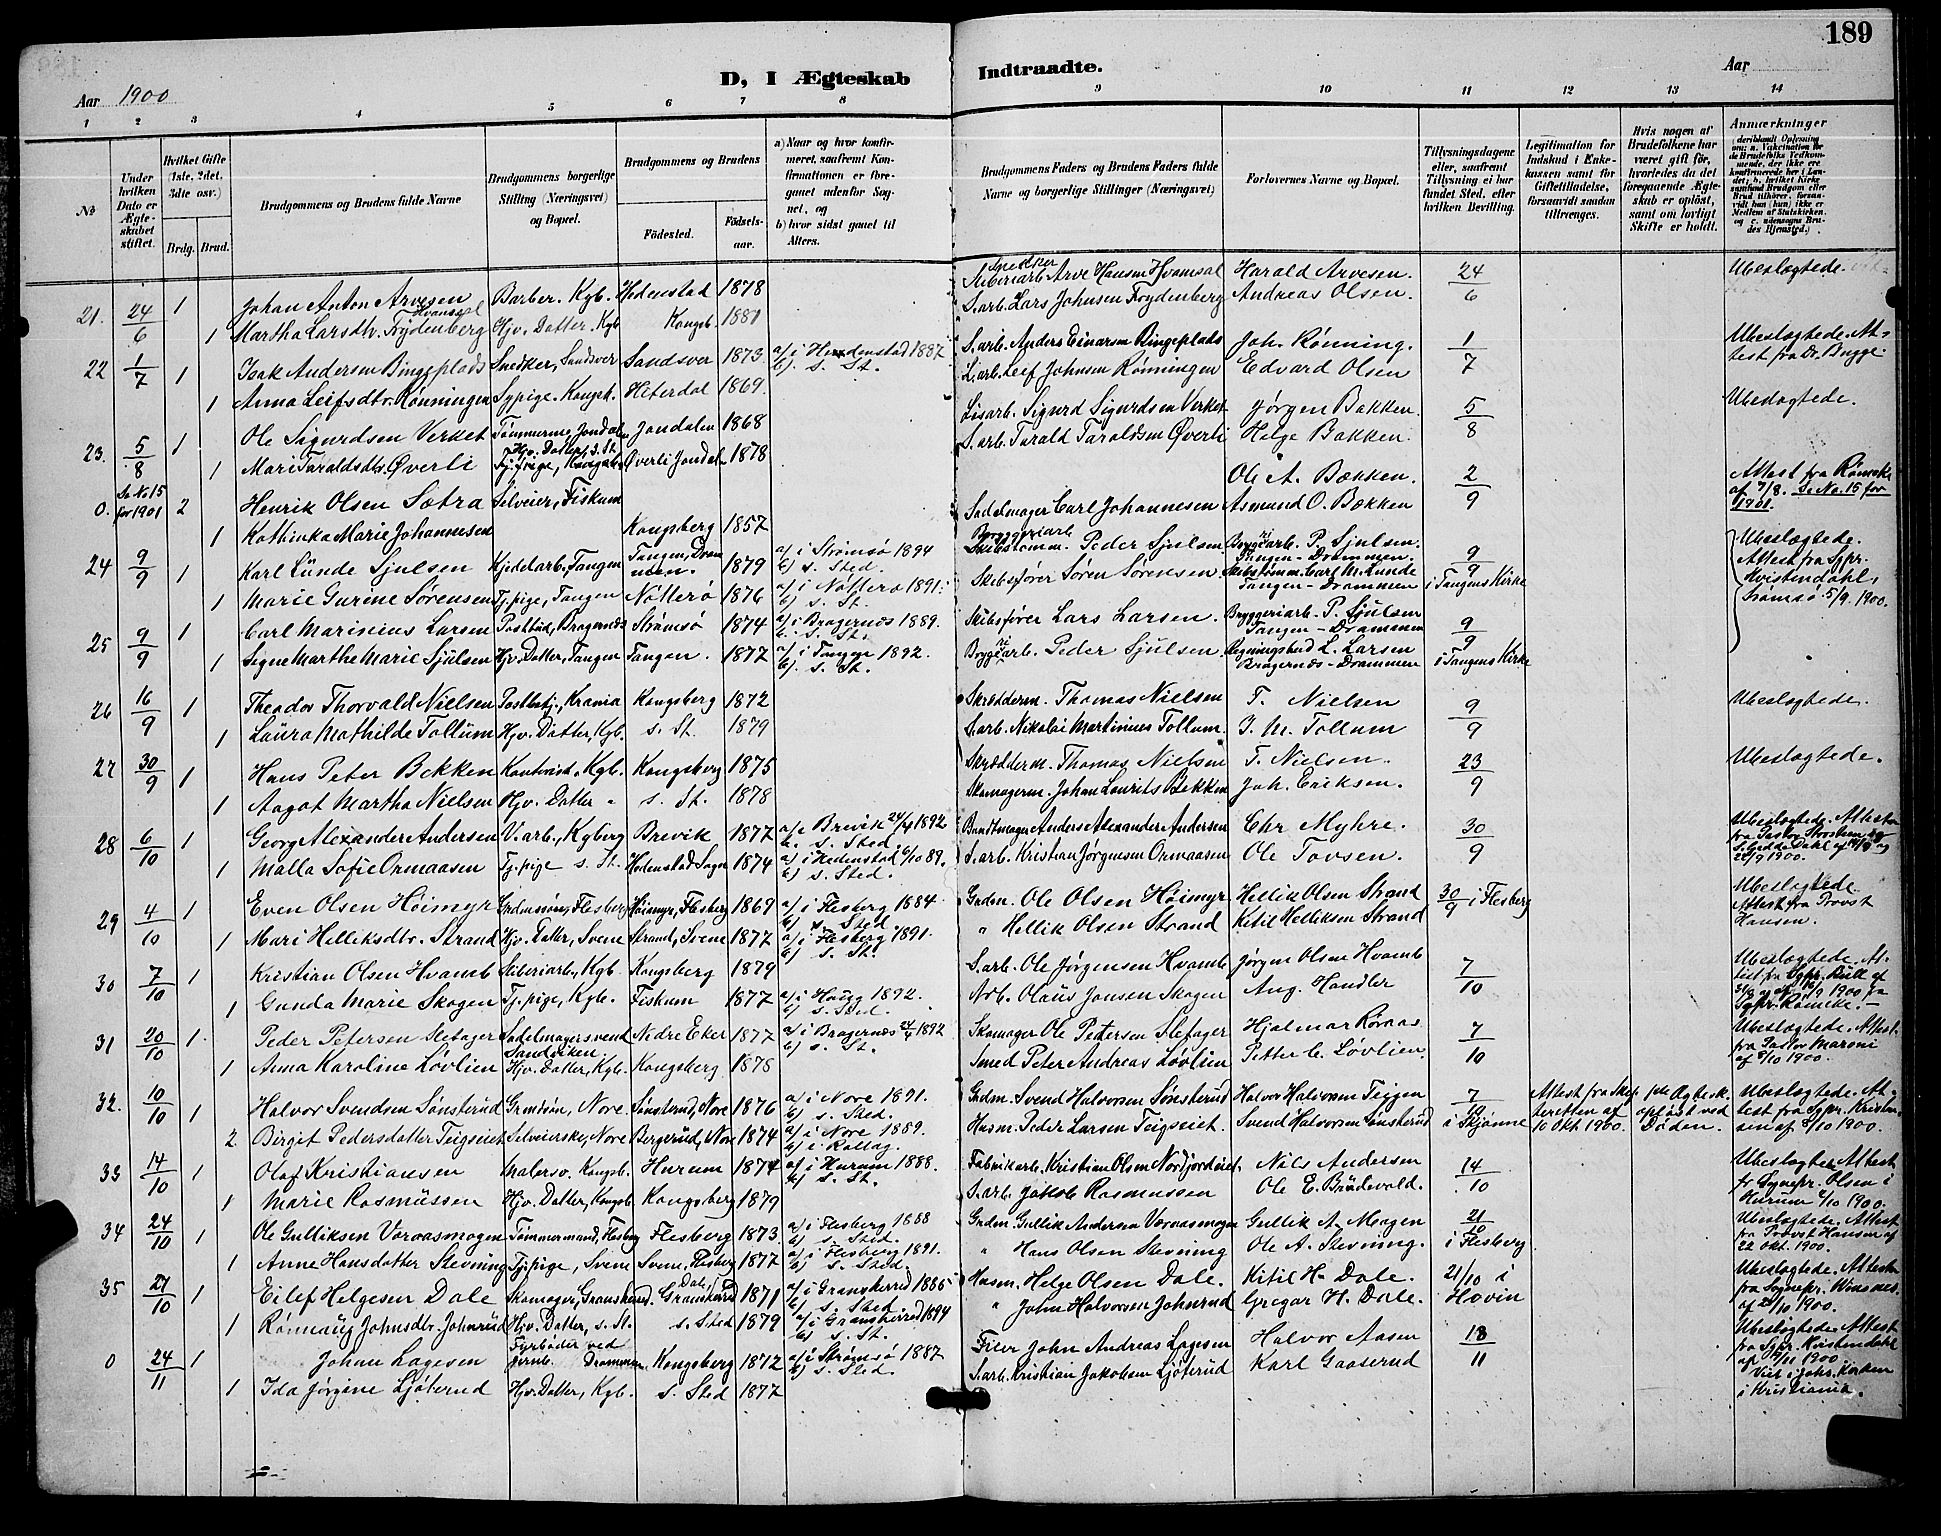 189
D, I Ægteskab Indtraadte.
Aar 1900
Aar
1 2 3 4 5 6 7 8 9 10 11 12 13 14
No
Under hvilken Dato er Ægteskabet stiftet.
Hvilket Gifte (1ste, 2det, 3dte osv.)
Brdg. Brud.
Brudgommens og Brudens fulde Navne
Brudgommens borgerlige Stilling (Næringsvei) og Bopæl.
Brudgommens og Brudens
Födested. Födselsaar.
a) Naar og hvor konfirmeret, saafremt Konfirmationen er foregaaet udenfor Sognet, og
b) hvor sidst gaaet til Alters.
Brudgommens Faders og Brudens Faders fulde Navne og borgerlige Stillinger (Næringsvei)
Forlovernes Navne og Bopæl.
Tillysningsdagene eller, saafremt Tillysning ei har fundet Sted, efter hvilken Bevilling.
Legitimation for Indskud i Enkekassen samt for Giftetilladelse, forsaavidt saadan tiltrænges.
Hvis nogen af Brudefolkene har været gift för, hvorledes da det foregaaende Ægteskab er oplöst, samt om lovligt Skifte er holdt.
Anmærkninger
21. 24/6 1 Johan Anton Arvesen Hvamsal Barber. Kgb. Hedenstad 1878 Snedker Arve Hansen Hvamsal Harald Arvesen. 24/6 Ubeslægtede.
1 Martha Larsdtr. Frydenberg Hjv. Datter. Kgb Kongsb. 1881 S.arb. Lars Johnsen Frydenberg Andreas Olsen.
22 1/7 1 Isak Andersen Bingeplads Snedker, Sandsver Sandsver 1873 a/i Hedenstad 1887 b). s. St. S.arb. Anders Einarsen Bingeplads Joh. Rønning. 1/7 Ubeslægtede. Attest fra Dr. Bugge.
1 Anna Leifsdtr. Rønningen Sypige. Kongsb. Hiterdal 1869. L.arb. Leif Johnsen Rønningen Edvard Olsen
23. 5/8 1 Ole Sigurdsen Verket Tømmerm. Jondalen Jondalen 1868 Sigurd Sigurdsen Verket Jørgen Bakken. 5/8 Ubeslægtede.
1 Mari Taraldsdtr. Øverli Hjv. Datter, s. St. Øverli Jondalen 1878 S.arb. Tarald Taraldsen Øverli Helge Bakken.
0. Se No 15 for 1901 2 Henrik Olsen Sætra Selveier, Fiskum Ole A. Bækken. 2/9 Attest fra Rømcke af 7/8. Se No. 15 for 1901.
1 Kathinka Marie Johannesen Kongsberg 1857 Sadelmager Carl Johannesen Asmund O. Bækken
24 9/9 1 Karl Lunde Sjulsen Kjedelarb. Tangen Tangen, Drammen. 1879 a/i Strømsø 1894 b) s. Sted. Bryggeriarb. Peder Sjulsen Bryggeriarb. P. Sjulsen. Tangen - Drammen. 9/9 i Tangens Kirke Ubeslægtede. Attest fra Sgpr. Kvistendahl, Strømsø 5/9 1900.
1 Marie Gurine Sørensen Tj.pige, Tangen Nøtterø 1876 a/i Nøtterø 1891. b) s. St. Skibsfører Søren Sørensen Skibstømm. Carl M. Lunde Tangen - Drammen
25 9/9 1 Carl Marinius Larsen Postbud, Bragernæs Strømsø 1874 a/i Bragernæs 1889. b. s. St. Skibsfører Lars Larsen. Bryggeriarb. P. Sjulsen Tangen - Drammen 9/9 i Tangens Kirke
1 Signe Marthe Marie Sjulsen Hjv. Datter, Tangen Tangen. 1877 a/i Tangen 1892. b). s. St. Bryggeriarb. Peder Sjulsen Regningsbud L. Larsen Bragernæs - Drammen
26 16/9 1 Theodor Thorvald Nielsen Postbetj. Krania Kongsberg 1872 Skrædderm. Thomas Nielsen T. Nielsen 9/9 Ubeslægtede.
1 Laura Mathilde Tollum Hjv. Datter, Kgb. s. St. 1879 S.arb. Nikolai Martinius Tollum. J. M. Tollum
27 30/9 1 Hans Peter Bekken Kontorist. Kgb. Kongsberg 1875 Skrædderm. Thomas Nielsen T. Nielsen. 23/9 Ubeslægtede.
1 Aagot Martha Nielsen Hjv. Datter " s. St. 1878 Skomagerm. Johan Laurits Bekken Joh. Eriksen.
28 6/10 1 Georg Alexander Andersen V.arb. Kgberg Brevik 1877 a/i Brevik 24/4 1892 b. s. Sted. Bundtmager Anders Alexander Andersen Chr Myhre. 30/9 Ubeslægtede. Attest fra Pastor
1 Malla Sofie Ormaasen Tj.pige s. St. Hedenstad Sogn 1874 a/i Hedenstad 6/10 89. b) s. Sted. S.arb. Kristian Jørgensen Ormaasen Ole Tovsen.
29 4/10 1 Even Olsen Høimyr Grdmssøn, Flesberg Høimyr, Flesberg 1869 a/i Flesberg 1884. b) s. Sted Grdm. Ole Olsen Høimyr Hellik Olsen Strand 30/9 i Flesberg Ubeslægtede. Attest fra Provst Hansen.
1 Mari Helliksdtr. Strand Hjv. Datter, Svene Strand, Svene 1877 a/i Flesberg 1891. b) s. St. " Hellik Olsen Strand Kitil Helliksen Strand
30 7/10 1 Kristian Olsen Hvamb Kgb. Kongsberg 1879 S.arb. Ole Jørgensen Hvamb Jørgen Olsen Hvamb 7/10 Ubeslægtede. Attest fra Sgpr. Bull af
1 Gunda Marie Skogen Tj.pige, Kgb. Fiskum 1877 a/i Haug 1892. b) s. Sted. Arb. Olaus Jonsen Skogen Aug. Handler
31 20/10 1. Peder Petersen Sletager Sadelmagersvend Sandviken Nedre Eker 1877 a/i Bragernæs 24/4 1892 b) s. St. Skomager Ole Pettersen Sletager Hjalmar Røraas 7/10 Ubeslægtede. Attest fra Pastor Maroni af 5/10 1900.
1 Anna Karoline Løvlien Hjv. Datter, Kgb. Kongsberg 1878 Smed Peter Andreas Løvlien Petter C. Løvlien.
32. 10/10 1 Halvor Svendsen Sønsterud Grmdsøn, Nore. Sønsterud, Nore 1876 a/i Nore 1891. b) s. Sted. Grdm. Svend Halvorsen Sønsterud Halvor Halvorsen Teigen 7/10 i Skjønne Attest fra Skifteretten af 10 Okt 1900. 1ste Ægtesk. opløst ved Døden. Ubeslægtede. Attest fra Sgpr. Kristensen af 8/10 1900.
2 Birgit Pedersdatter Teigseiet Selveierske, Nore Bergerud, Nore 1874 a/i Nore 1889. b/i Rollag. Husm. Peder Larsen Teigseiet. Svend Halvorsen Sønsterud
33 14/10 1 Olaf Kristiansen Malersv. Kongsb. Hurum 1874 a/i Hurum 1888. b) s. St. Fabrikarb. Kristian Olsen Nordfjordeiet. Nils Andersen 14/10 Ubeslægtede Attest fr Sognepr. Olsen i Hurum 6/10 1900.
1 Marie Rasmussen Hjv. Datter, Kongsb Kongsberg 1879 S.arb. Jakob Rasmussen Ole E. Brådevold.
34 24/10 1 Ole Gulliksen Voraasmogen Tømmermand, Flesberg Flesberg 1873 a/i Flesberg 1888 b) s. Sted. Grdm. Gullik Andersen Voraasmogen Gullik A. Moagen 21/10 i Flesberg Ubeslægtede. Attest fra Provst Hansen af 22 Okt. 1900.
1 Anne Hansdatter Stevning Tj.pige, Svene Svene, Flesberg 1877 a/i Flesberg 1891. b) s. Sted. " Hans Olsen Stevning Ole A. Stevning.
35 27/10 1 Eilef Helgesen Dale Skomager, Gransherred. Dale, Gransherred 1871 a/i Gransherred 1885 b) s. Sted. Husm. Helge Olsen Dale. Kitil H. Dale. 21/10 i Hovin Ubeslægtede. Attest fra Sognepr. af 24/10 1900.
1 Rønnaug Johnsdtr. Johnrud Hjv. Datter, s. St. s. Sted 1879 a/i Gransherred 1894 b) s. St. " John Halvorsen Johnrud Gregar H. Dale.
0 24/11 1 Johan Lagesen Fyrbøder ved Jernb. Drammen Kongsberg 1872 a/i Strømsø 1887 b) s. Sted. Feier John Andreas Lagesen Halvor Aasen 18/11 Ubeslægtede Attest fra Sgpr. Kvistendahl af 19/11 1900. Viet i Joh. Kirken i Kristiania.
1 Ida Jørgine Ljøterud Hjv. Datter, Kgb. s. Sted 1877 S.arb. Kristian Jakobsen Ljøterud Karl Gaaserud